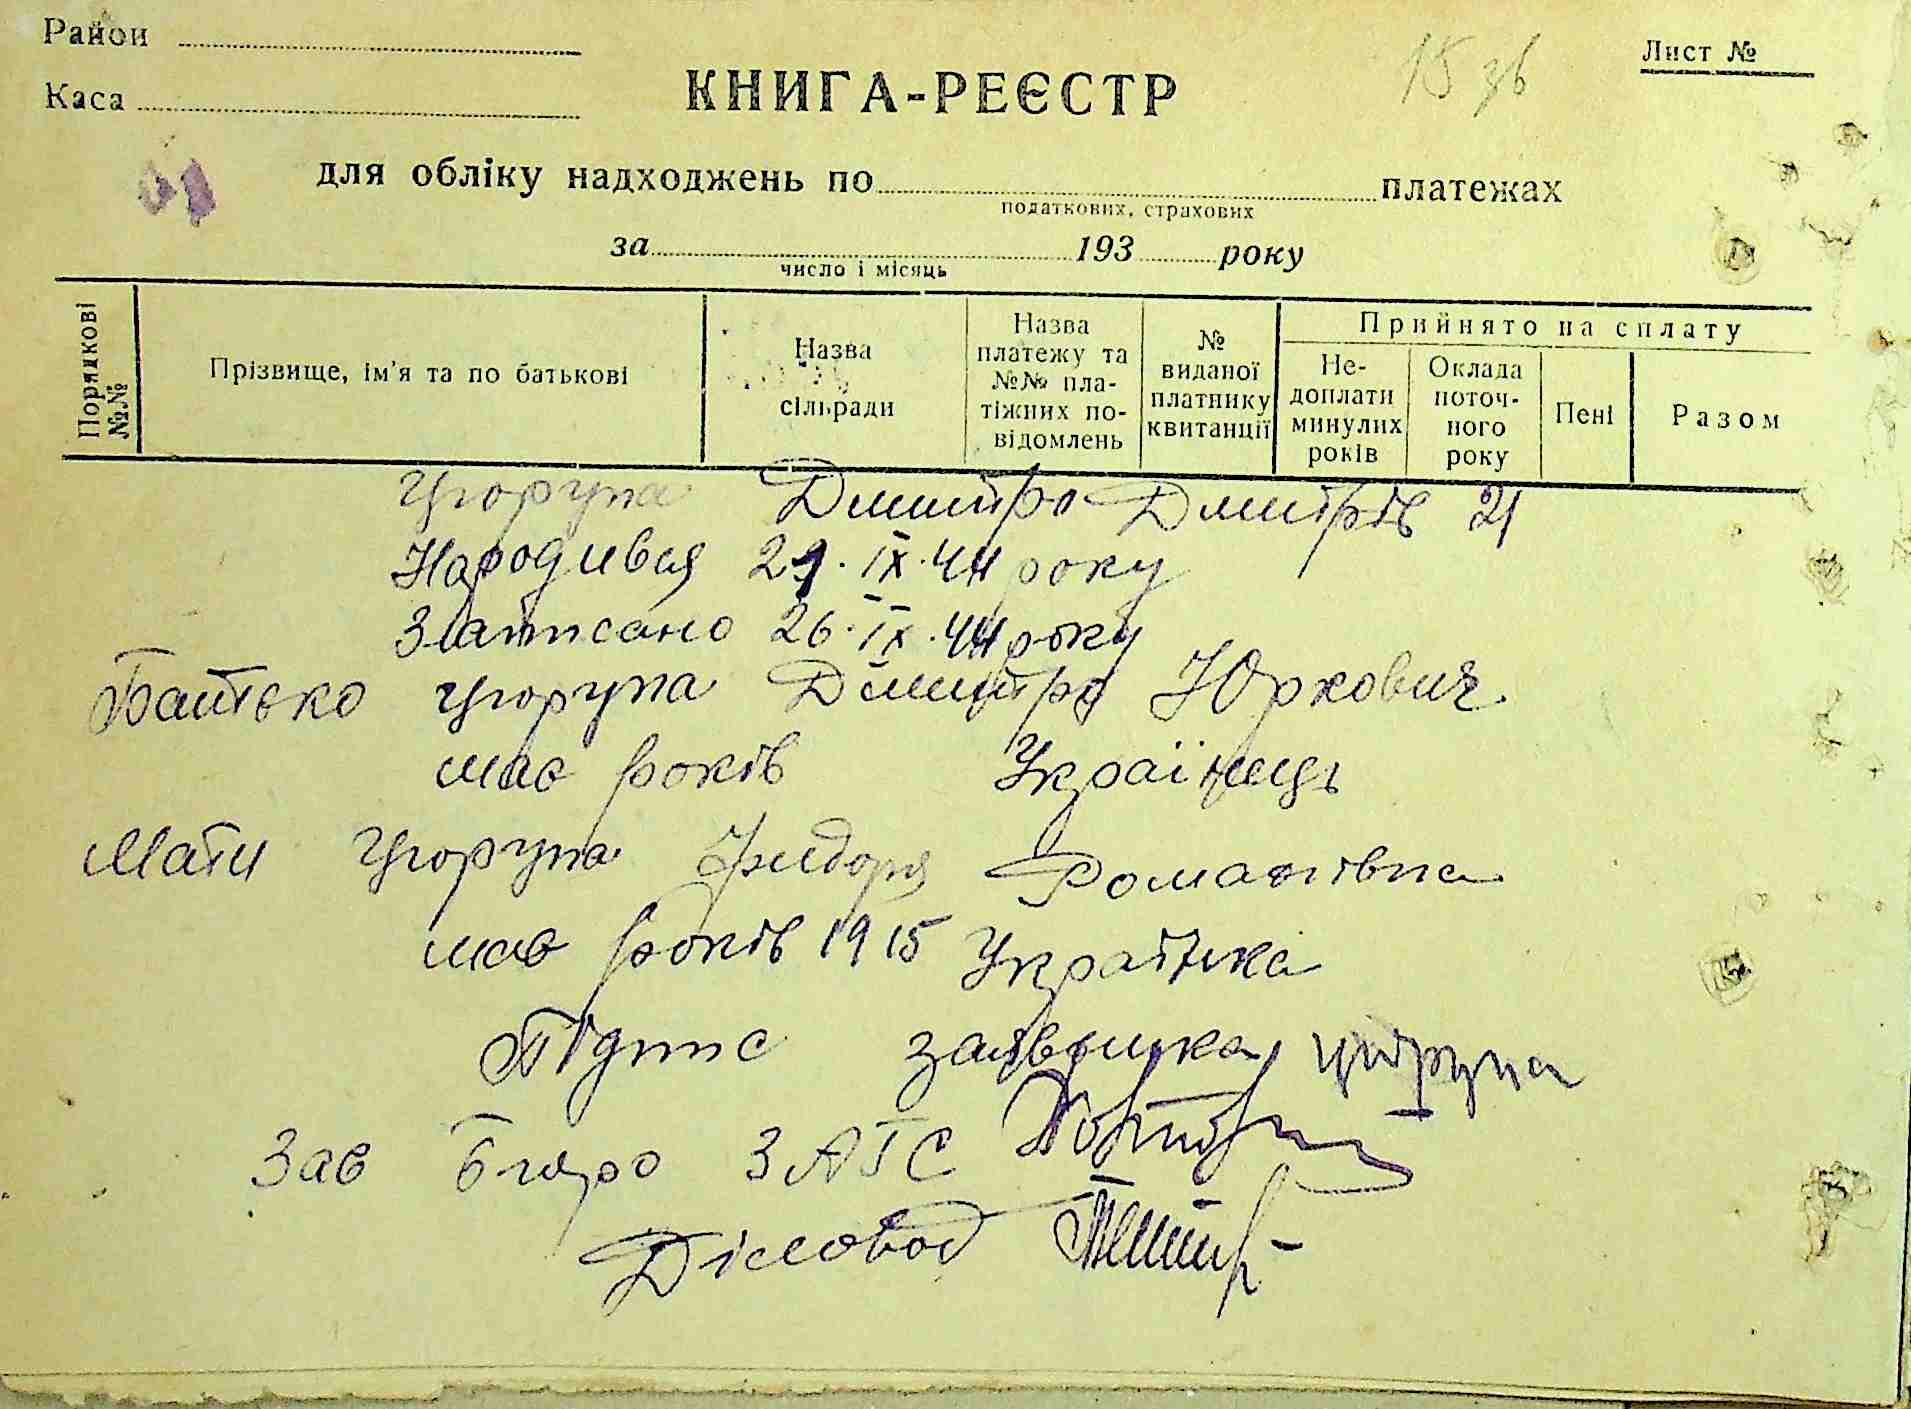 Район
Каса
КНИГА-РЕЄСТР
15 зв
Лист №
для обліку надходжень по платежах
податкових, страхових
за 193 року
число і місяць
Порядкові №№
Прізвище, ім'я та по батькові
Назва сільради
Назва платежу та №№ пла-тіжних по-відомлень
№ виданої платнику квитанції
Прийнято на сплату
Не-доплати минулих років
Оклада поточ-ного року
Пені
Разом
Цюрупа Дмитро Дмитрів 21
Народився 21.IX.44 року
Записано 26.IX.44 року
Батько Цюрупа Дмитро Юркович
має років Українець
Мати Цюрупа Фидоря Романівна
має років 1915 Українка
Підпис заявника Цюрупа
Зав Бюро ЗАГС
Діловод